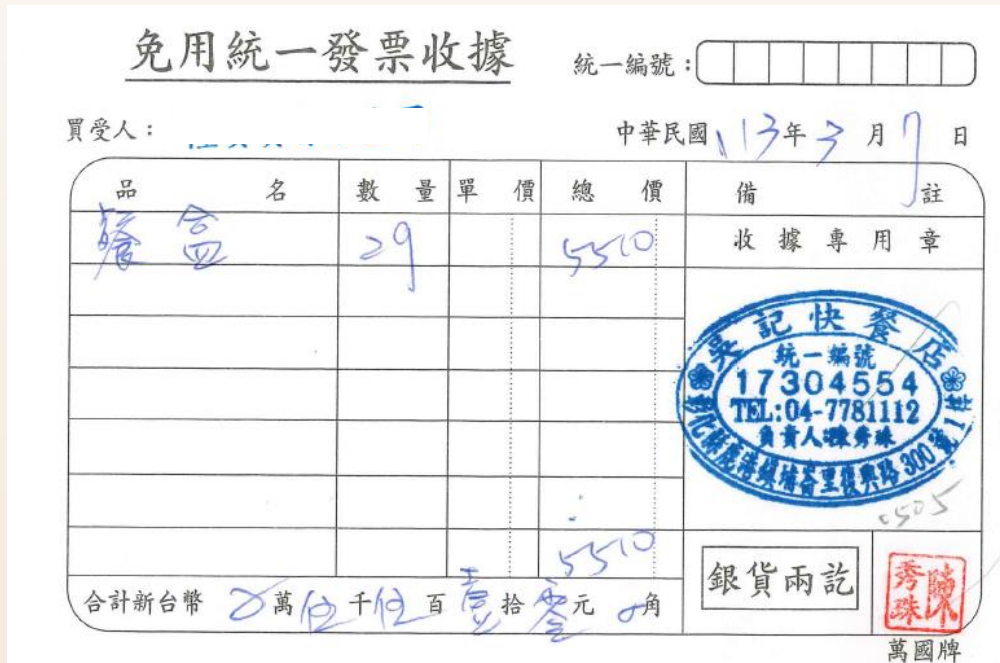 免用統一發票收據
統一編號：
買受人：
中華民國 113 年 3 月 7 日
品名 數量 單價 總價 備註
餐盒 29 5510
收據專用章
吳記快餐店
統一編號
17304554
TEL:04-7781112
負責人:陳秀珠
彰化縣鹿港鎮埔崙里復興路300號1樓
0505
5510
合計新台幣 0萬伍千伍百壹拾零元0角
銀貨兩訖
陳秀珠
萬國牌